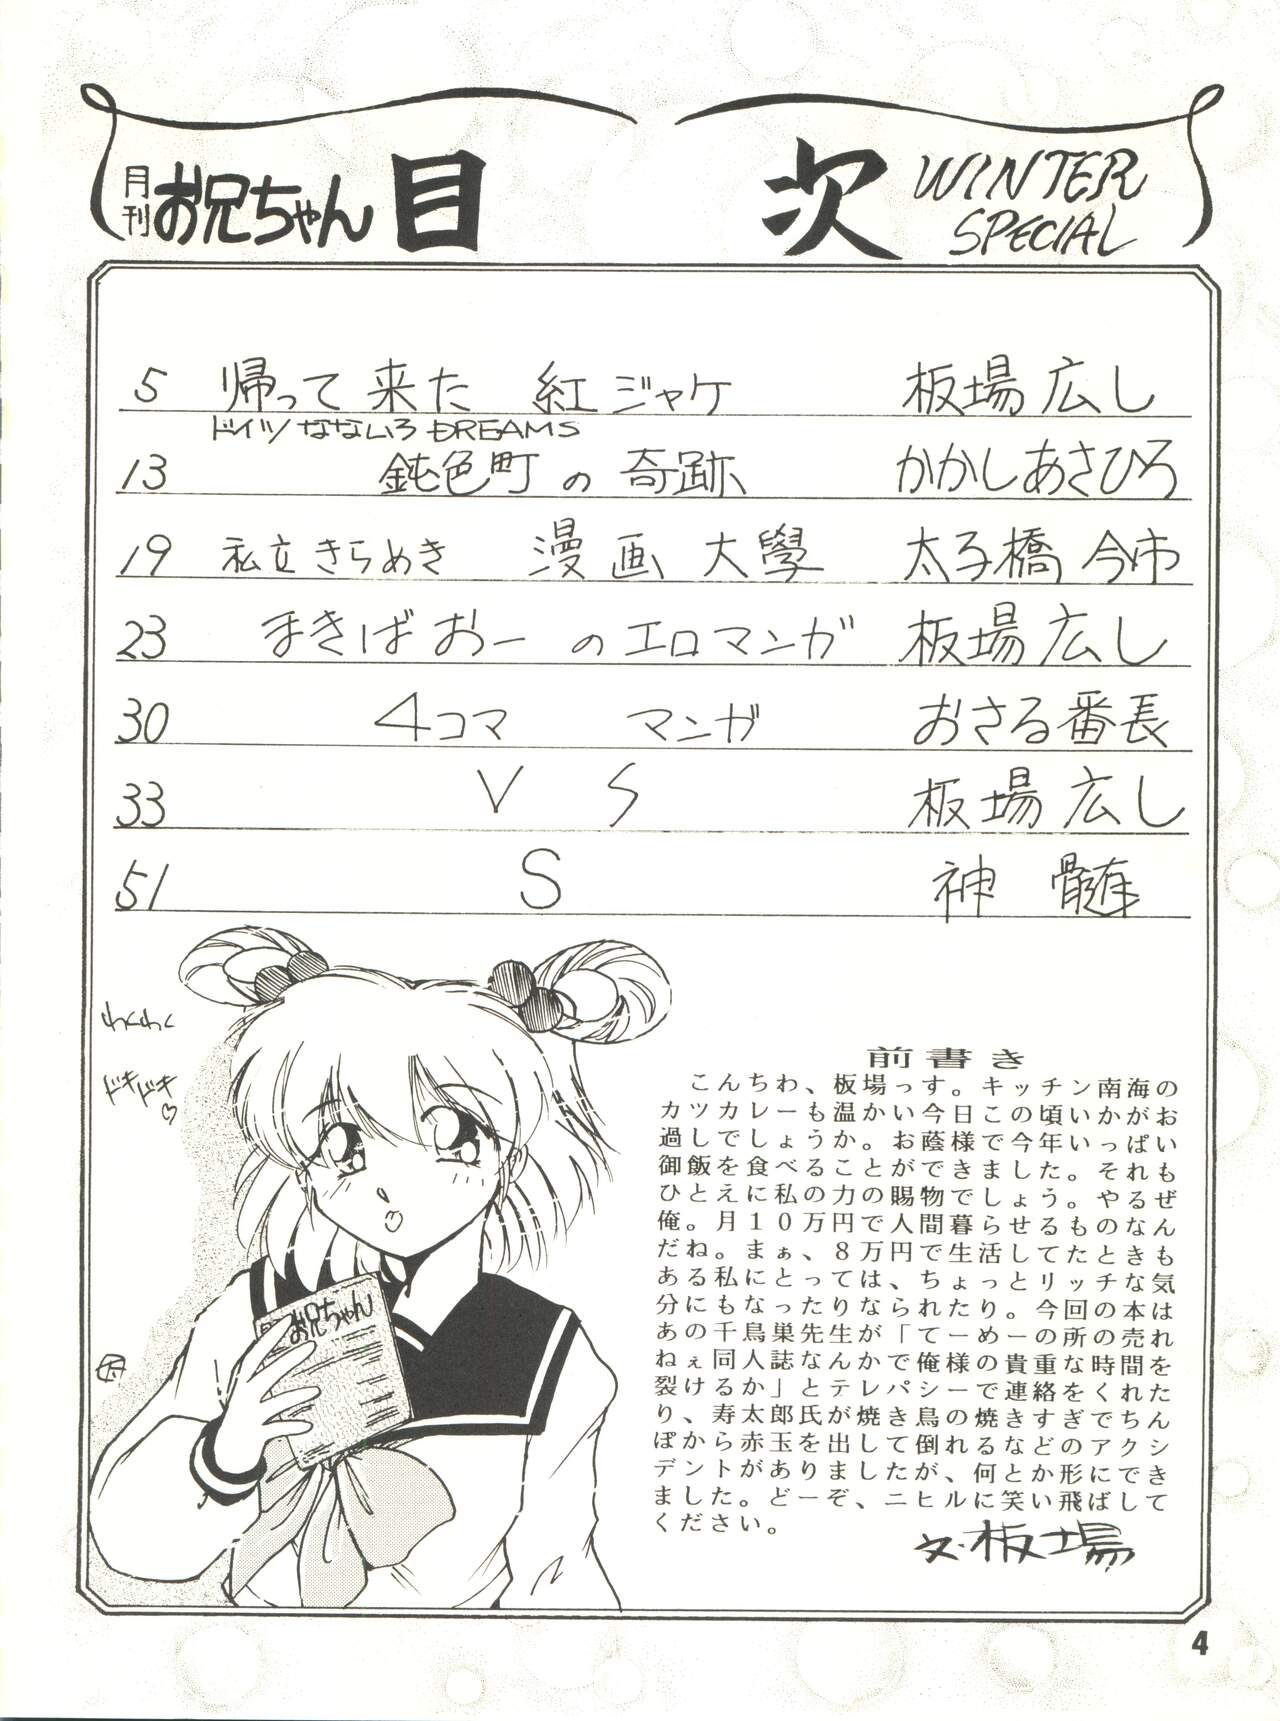 月刊 お兄ちゃん 目次 WINTER SPECIAL
5 帰って来た 紅ジャケ 板場広し
ドイツなないろDREAMS
13 鈍色町の奇跡 かかしあさひろ
19 私立きらめき 漫画大學 太子橋今市
23 まきばおーのエロマンガ 板場広し
30 4コマ マンガ おさる番長
33 VS 板場広し
51 S 神髄
わくわく
ドキドキ♡
お兄ちゃん
前書き
こんちわ、板場っす。キッチン南海の
カツカレーも温かい今日この頃いかがお
過しでしょうか。お蔭様で今年いっぱい
御飯を食べることができました。それも
ひとえに私の力の賜物でしょう。やるぜ
俺。月10万円で人間暮らせるものなん
だね。まぁ、8万円で生活してたときも
ある私にとっては、ちょっとリッチな気
分にもなったりなられたり。今回の本は
あの千鳥巣先生が「てーめーの所の売れ
ねぇ同人誌なんかで俺様の貴重な時間を
裂けるか」とテレパシーで連絡をくれた
り、寿太郎氏が焼き鳥の焼きすぎでちん
ぽから赤玉を出して倒れるなどのアクシ
デントがありましたが、何とか形にでき
ました。どーぞ、ニヒルに笑い飛ばして
ください。
文・板場
4